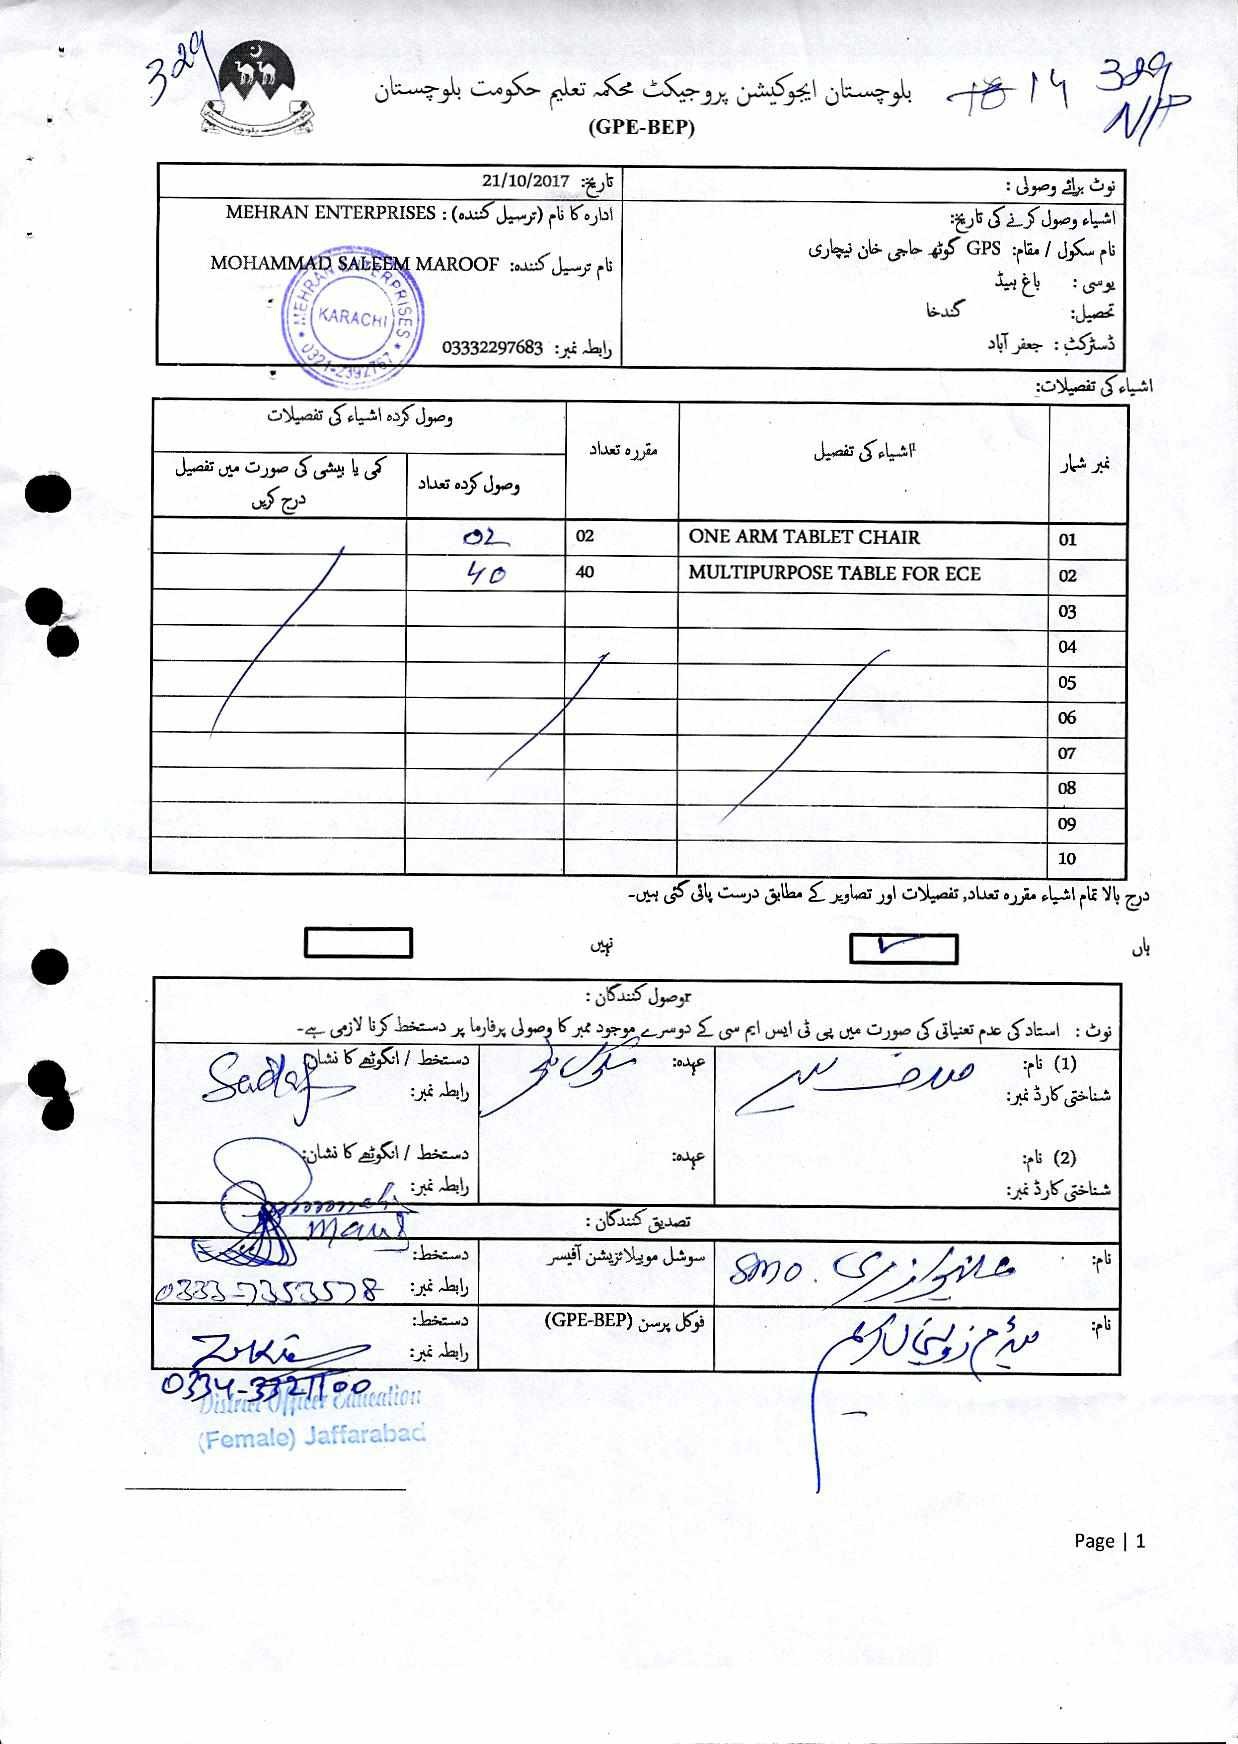 329
بلوچستان ایجوکیشن پروجیکٹ محکمہ تعلیم حکومت بلوچستان
18 14 329
N/P
(GPE-BEP)
نوٹ برائے وصولی :
تاریخ: 21/10/2017
اشیاء وصول کرنے کی تاریخ:
ادارہ کا نام (ترسیل کنندہ) : MEHRAN ENTERPRISES
نام سکول / مقام: GPS گوٹھ حاجی خان نیچاری
نام ترسیل کنندہ: MOHAMMAD SALEEM MAROOF
یوسی : باغ ہیڈ
تحصیل: گندخا
ڈسٹرکٹ : جعفر آباد
رابطہ نمبر: 03332297683
MEHRAN ENTERPRISES
KARACHI
0321-2392767
اشیاء کی تفصیلات:
نمبر شمار
اشیاء کی تفصیل
مقررہ تعداد
وصول کردہ اشیاء کی تفصیلات
وصول کردہ تعداد
کمی یا بیشی کی صورت میں تفصیل
درج کریں
01 ONE ARM TABLET CHAIR 02 02
02 MULTIPURPOSE TABLE FOR ECE 40 40
03
04
05
06
07
08
09
10
درج بالا تمام اشیاء مقررہ تعداد, تفصیلات اور تصاویر کے مطابق درست پائی گئی ہیں۔
ہاں ✓ نہیں
وصول کنندگان :
نوٹ : استاد کی عدم تعنیاتی کی صورت میں پی ٹی ایس ایم سی کے دوسرے موجود ممبر کا وصولی پرفارما پر دستخط کرنا لازمی ہے۔
(1) نام:
عہدہ:
دستخط / انگوٹھے کا نشان:
Sadaf
شناختی کارڈ نمبر:
رابطہ نمبر:
(2) نام:
عہدہ:
دستخط / انگوٹھے کا نشان:
شناختی کارڈ نمبر:
رابطہ نمبر:
تصدیق کنندگان :
نام: SMO.
سوشل موبیلائزیشن آفیسر
دستخط:
رابطہ نمبر: 0333-7353578
نام:
فوکل پرسن (GPE-BEP)
دستخط:
رابطہ نمبر:
0334-3321100
District Officer Education
(Female) Jaffarabad
Page | 1